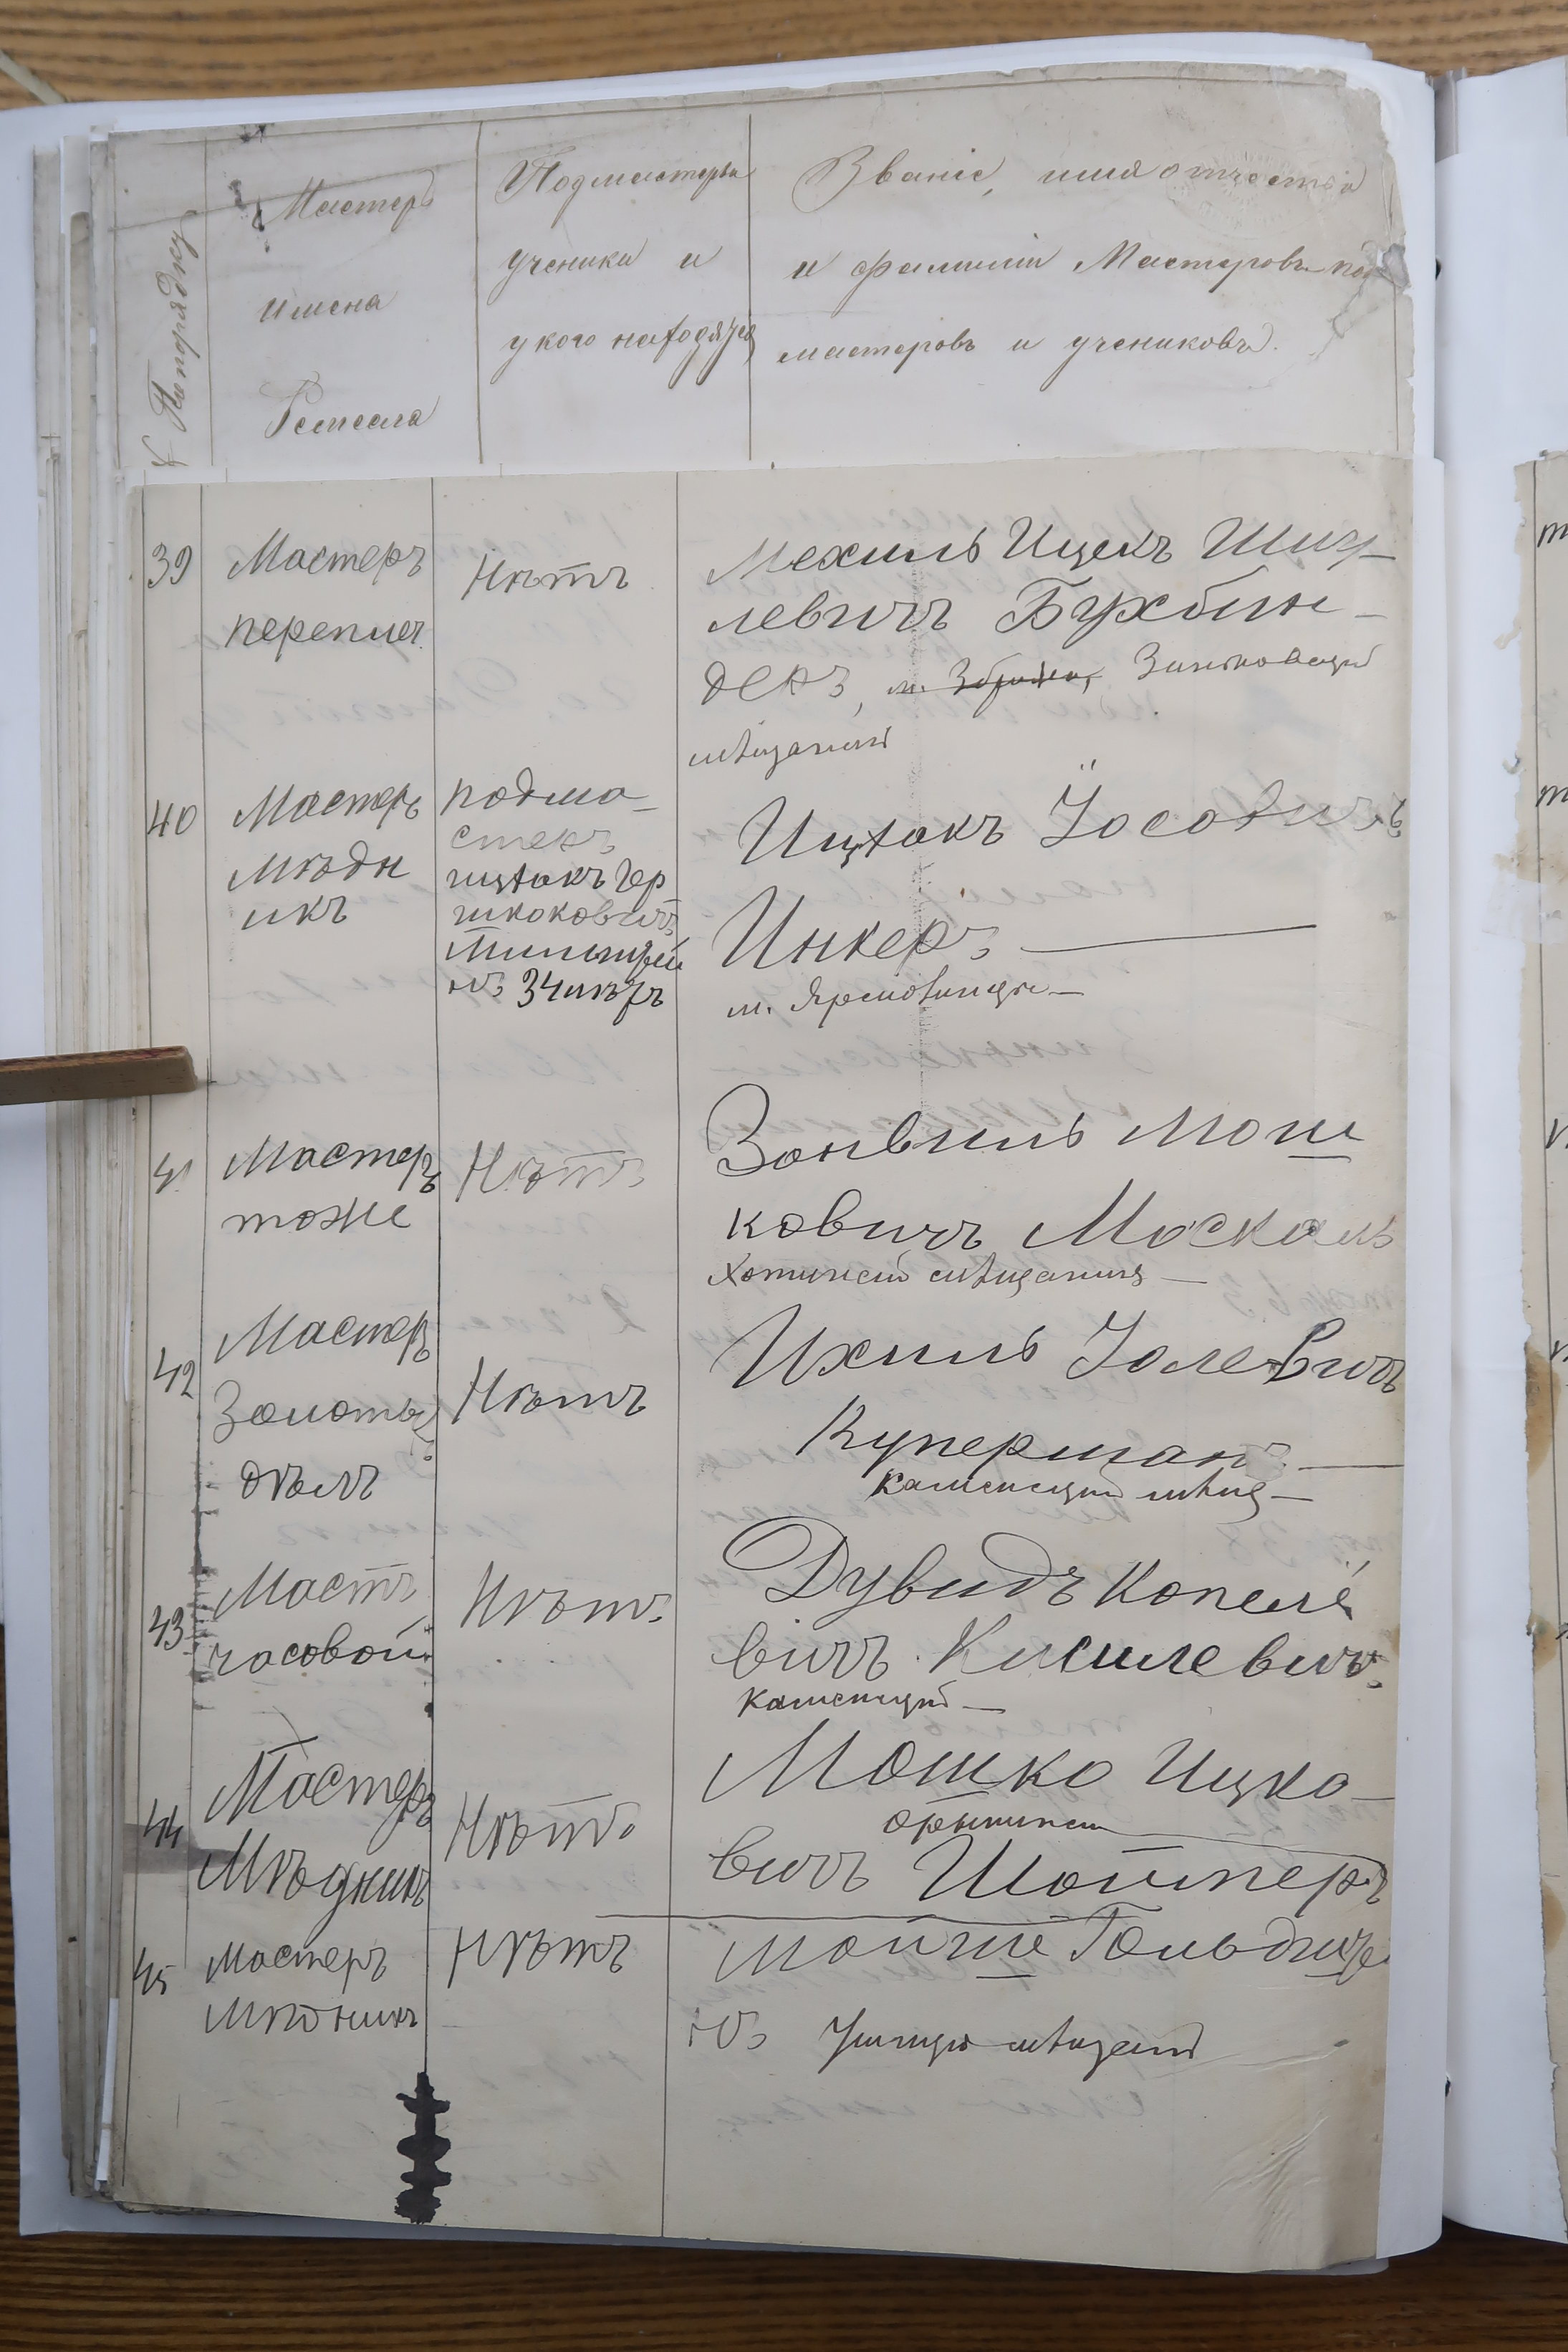 № Попорядку
Мастеръ
имена
Ремесла
Подмастерья
ученики и
у кого находятся
Званіе, имя отчество
и фамиліи Мастеровъ под
мастеровъ и учениковъ.
39
Мастеръ
переплет.
Нѣтъ
Мехиль Ицекъ Шму-
левичъ Бухбин-
деръ, м. Зиньковецкій
мѣщанинъ
40
Мастеръ
мѣдн
икъ
подма-
стеръ
ицхакъ Гер
шковичъ
нъ
Ицхакъ Іосовичъ
Инкеръ
м. Ярмолинцы
41
Мастеръ
тоже
Нѣтъ
Зонвиль Мош
ковичъ Москаль
Хотинскій мѣщанинъ
42
Мастеръ
Золотыхъ
дѣлъ
Нѣтъ
Ихиль Іолевичъ
Куперманъ
Каменецкій мѣщ
43
Мастъ
часовой
Нѣтъ
Дувидъ Копеле
вичъ Кисилевичъ
Каменецкій
44
Мастеръ
Мѣдникъ
Нѣтъ
Мошко Ицко-
вичъ Шойхеръ
45
Мастеръ
Мѣдникъ
Нѣтъ
Мойше Гольдште
нъ мѣщанинъ